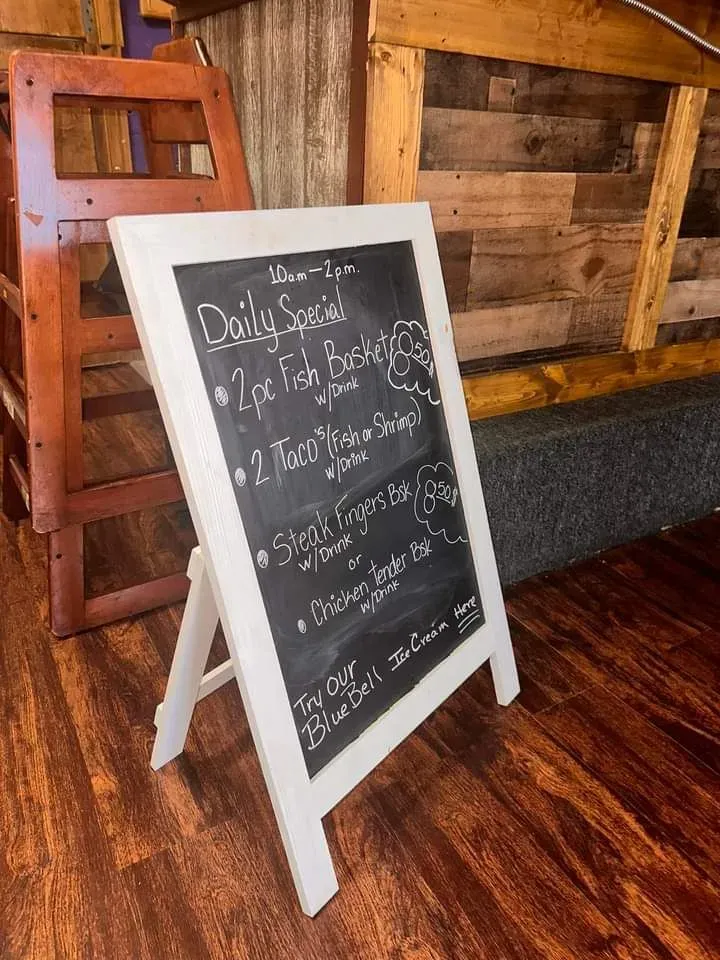 10a.m-2p.m.
Daily Special
2pc Fish Basket 8.50
w/Drink
2 Taco's (Fish or Shrimp)
w/Drink
Steak Fingers Bsk 8.50
w/Drink
or
Chicken Tender Bsk
w/Drink
Try Our
BlueBell Ice Cream Here